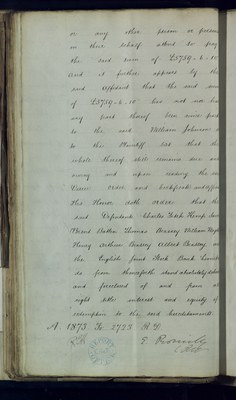 or any other person or persons
on their behalf attend to pay
the said sum of £3759-6-10
And it further appears by the
said affidavit that the said sum
of £3759-6-10 has not nor has
any part thereof been since paid
to the said William Johnson
to the Plaintiff but that the
whole thereof still remains due and
owing and upon reading the said
order and certificate and affidavit
His Honor doth order that the
said Defendants Charles Fitch Kemp
Thomas Brassey
Henry Arthur Brassey Albert Brassey and
the English Joint Stock Bank Limited
do from thenceforth stand absolutely debarred
and foreclosed of and from all
right title interest and equity of
redemption to the said hereditaments
A. 1873 Fo 2723 R.D.
E. Romilly